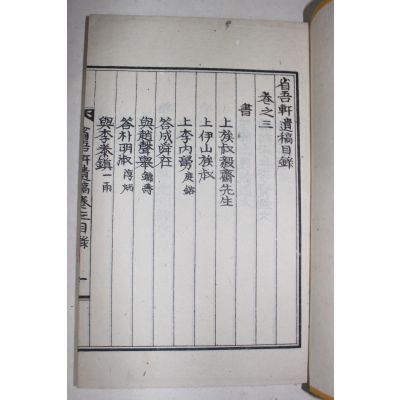 省吾軒遺稿目錄
卷之三
書
上族叔毅齋先生
上伊山族叔
上李內翰
答成舜在
與趙聲舉
答朴明淑
與李養鎭
省吾軒遺稿卷三目錄 一